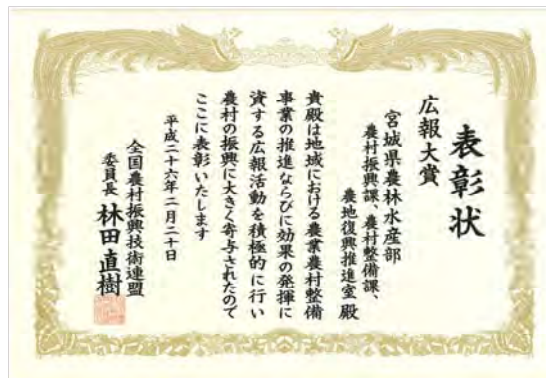 表彰状
広報大賞
宮城県農林水産部
農村振興課、農村整備課、
農地復興推進室 殿
貴殿は地域における農業農村整備
事業の推進ならびに効果の発揮に
資する広報活動を積極的に行い
農村の振興に大きく寄与されたので
ここに表彰いたします
平成二十六年二月二十日
全国農村振興技術連盟
委員長 林田直樹